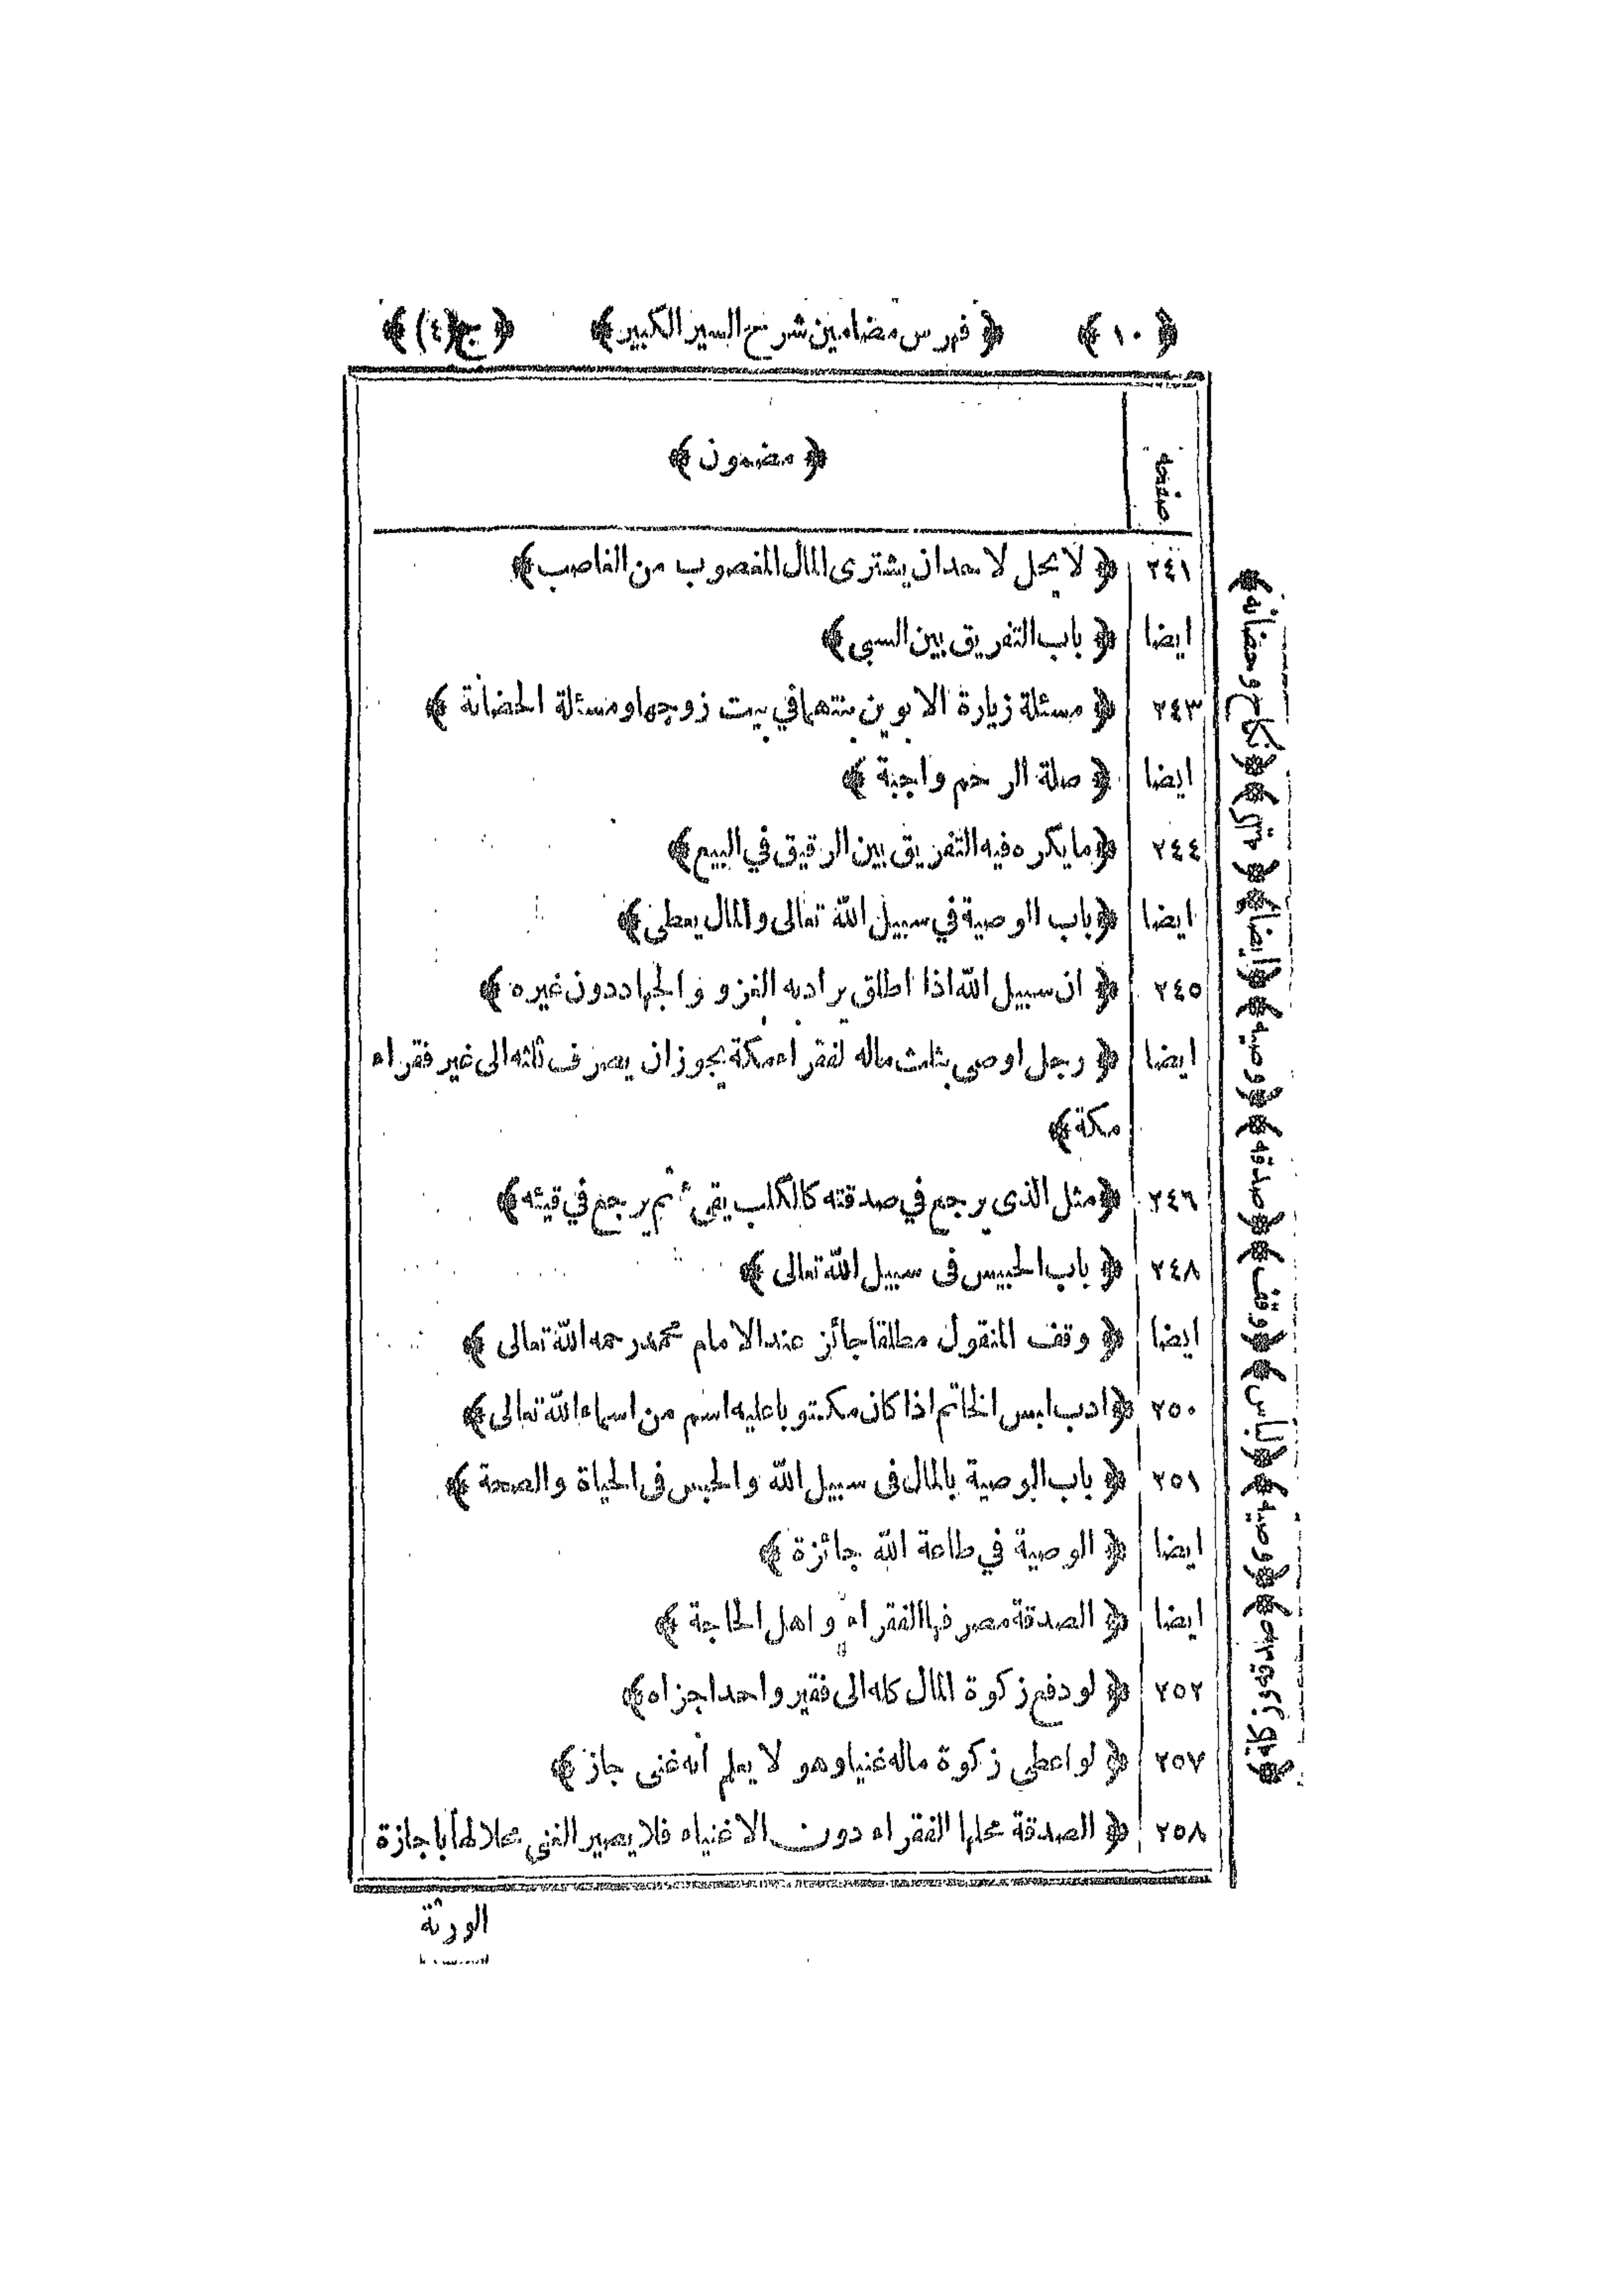 ﴿ ١٠ ﴾ ﴿ فهرس مضامين شرح السير الكبير ﴾ ﴿ ج (٤) ﴾
صفحه ﴿ مضمون ﴾
٢٤١ ﴿ لا يحل لاحد ان يشترى المال المغصوب من الغاصب ﴾
ايضا ﴿ باب التفريق بين السبي ﴾
٢٤٣ ﴿ مسئلة زيارة الابوين بنتهما في بيت زوجها ومسئلة الحضانة ﴾
ايضا ﴿ صلة الرحم واجبة ﴾
٢٤٤ ﴿ ما يكره فيه التفريق بين الرقيق في البيع ﴾
ايضا ﴿ باب الوصية في سبيل الله تعالى والمال يعطى ﴾
٢٤٥ ﴿ ان سبيل الله اذا اطلق يراد به الغزو و الجهاد دون غيره ﴾
ايضا ﴿ رجل اوصى بثلث ماله لفقراء مكة يجوز ان يصرف ثلثه الى غير فقراء
مكة ﴾
٢٤٦ ﴿ مثل الذى يرجع في صدقته كالكلب يقئ ثم يرجع في قيئه ﴾
٢٤٨ ﴿ باب الحبيس فى سبيل الله تعالى ﴾
ايضا ﴿ وقف المنقول مطلقا جائز عند الامام محمد رحمه الله تعالى ﴾
٢٥٠ ﴿ ادب لبس الخاتم اذا كان مكتوبا عليه اسم من اسماء الله تعالى ﴾
٢٥١ ﴿ باب الوصية بالمال فى سبيل الله والحبس فى الحياة والصحة ﴾
ايضا ﴿ الوصية في طاعة الله جائزة ﴾
ايضا ﴿ الصدقة مصرفها الفقراء و اهل الحاجة ﴾
٢٥٢ ﴿ لو دفع زكوة المال كله الى فقير واحد اجزاه ﴾
٢٥٧ ﴿ لو اعطى زكوة ماله غنيا وهو لا يعلم انه غنى جاز ﴾
٢٥٨ ﴿ الصدقة محلها الفقراء دون الاغنياء فلا يصير الغنى محلا لها باجازة
الورثة
﴿ نكاح وحضانه ﴾
﴿ ايضاً ﴾
﴿ وصيه ﴾
﴿ صدقه ﴾
﴿ وقف ﴾
﴿ لباس ﴾
﴿ وصيه ﴾